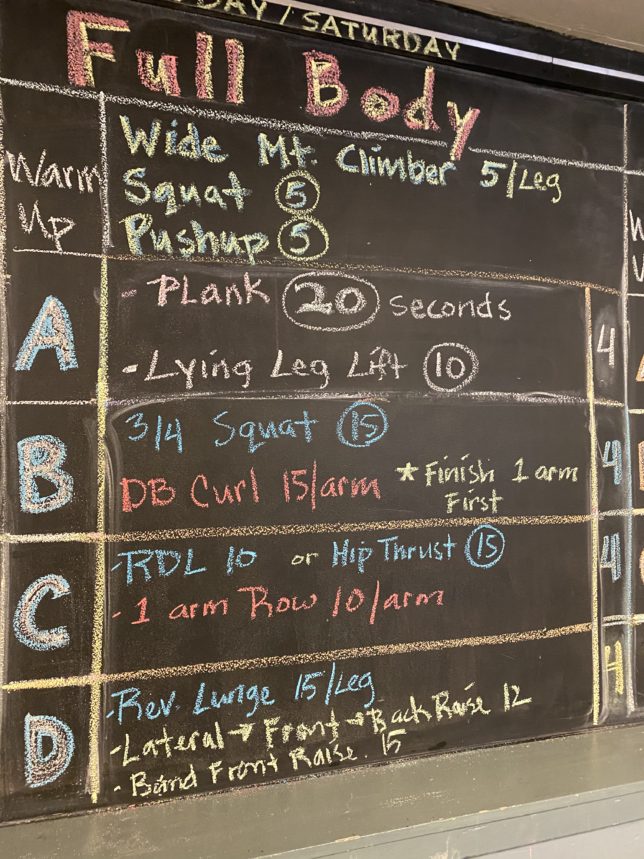 DAY / SATURDAY
Full Body
Warm Up
Wide Mt. Climber 5/Leg
Squat 5
Pushup 5
A
- Plank 20 seconds
- Lying Leg Lift 10
4
B
3/4 Squat 15
DB Curl 15/arm * Finish 1 arm First
4
C
- RDL 10 or Hip Thrust 15
- 1 arm Row 10/arm
4
D
- Rev. Lunge 15/Leg
- Lateral → Front → Back Raise 12
- Band Front Raise. 15
4